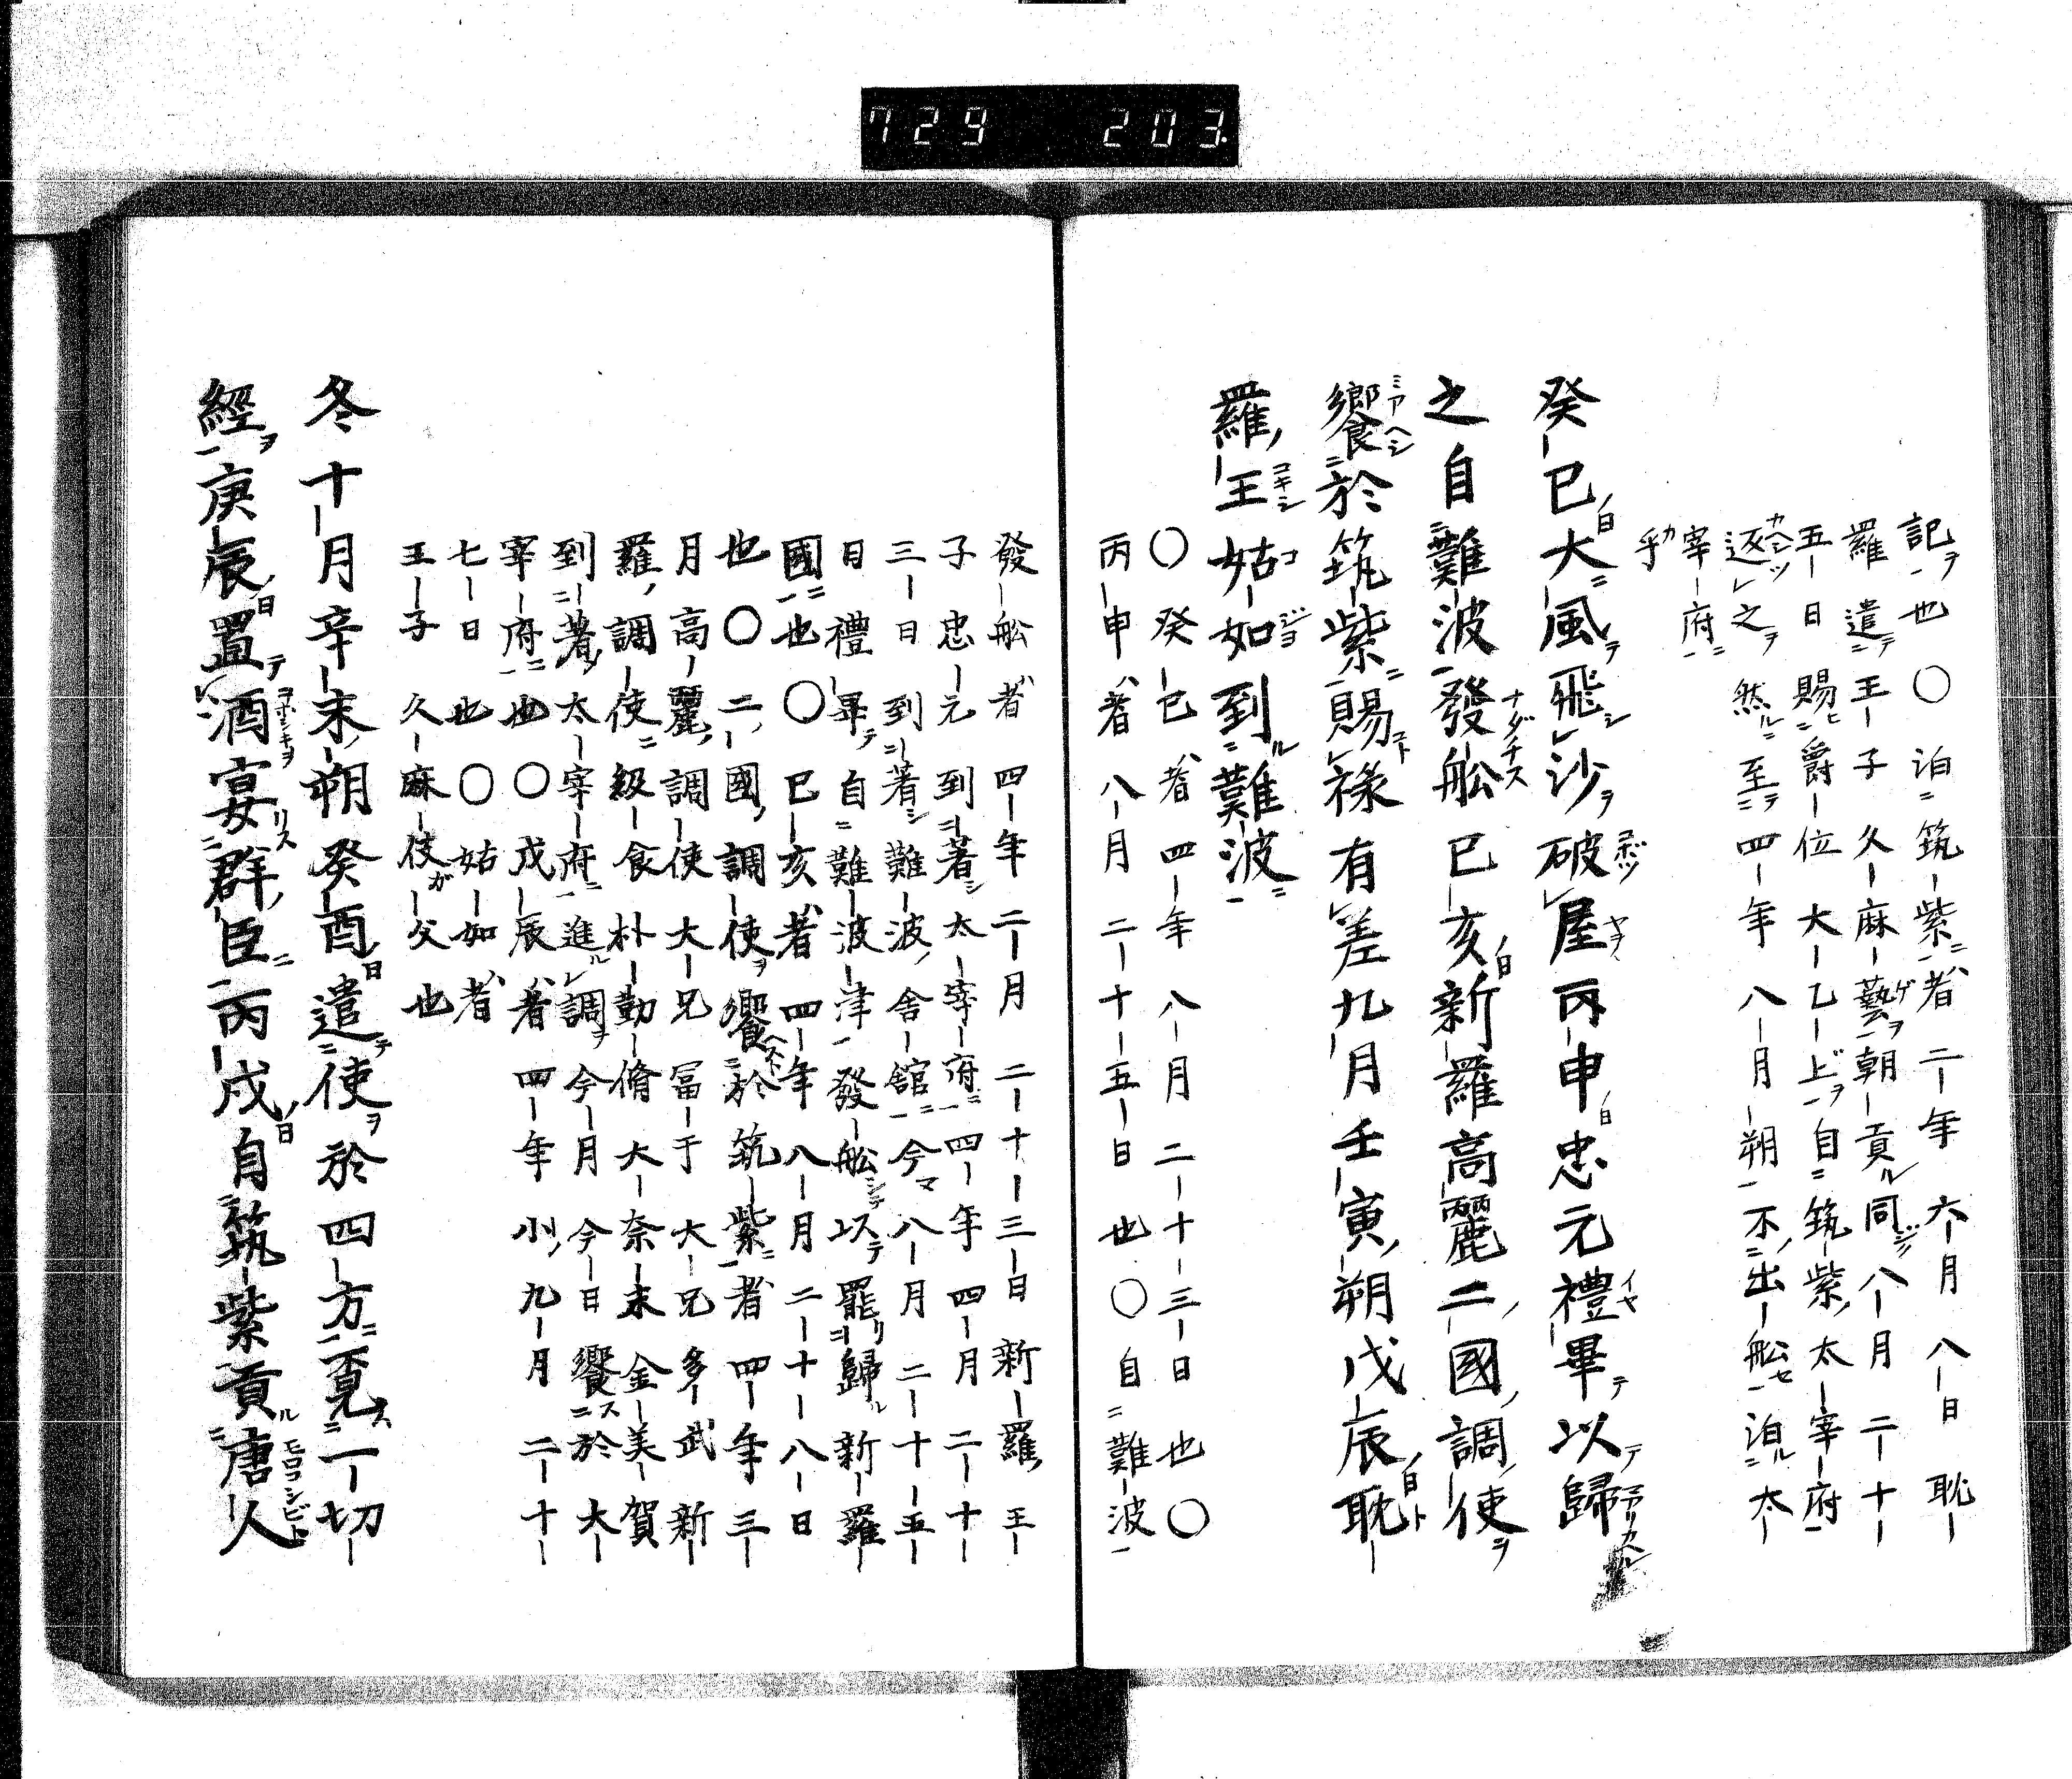 729 203
記也〇泊筑紫者二年六月八日耽
羅遣王子久麻藝朝貢同八月二十
五日賜爵位大乙上自筑紫太宰府
返之然至四年八月朔不出舩泊太
宰府
乎
癸巳大風飛沙破屋丙申忠元禮畢以歸
之自難波發舩己亥新羅高麗二國調使
饗於筑紫賜禄有差九月壬寅朔戊辰耽
羅王姑如到難波
〇癸巳者四年八月二十三日也〇
丙申者八月二十五日也〇自難波
發舩者四年二月二十三日新羅王
子忠元到著太宰府四年四月二十
三日到著難波舎舘今八月二十五
日禮畢自難波津發舩以罷歸新羅
國也〇已亥者四年八月二十八日
也〇二國調使饗於筑紫者四年三
月高麗調使大兄冨于大兄多武新
羅調使級食朴勤脩大奈末金美賀
到著太宰府進調今月今日饗於大
宰府也〇戊辰者四年小九月二十
七日也〇姑如者
王子久麻伎父也
冬十月辛未朔癸酉遣使於四方覓一切
經庚辰置酒宴群臣丙戌自筑紫貢唐人